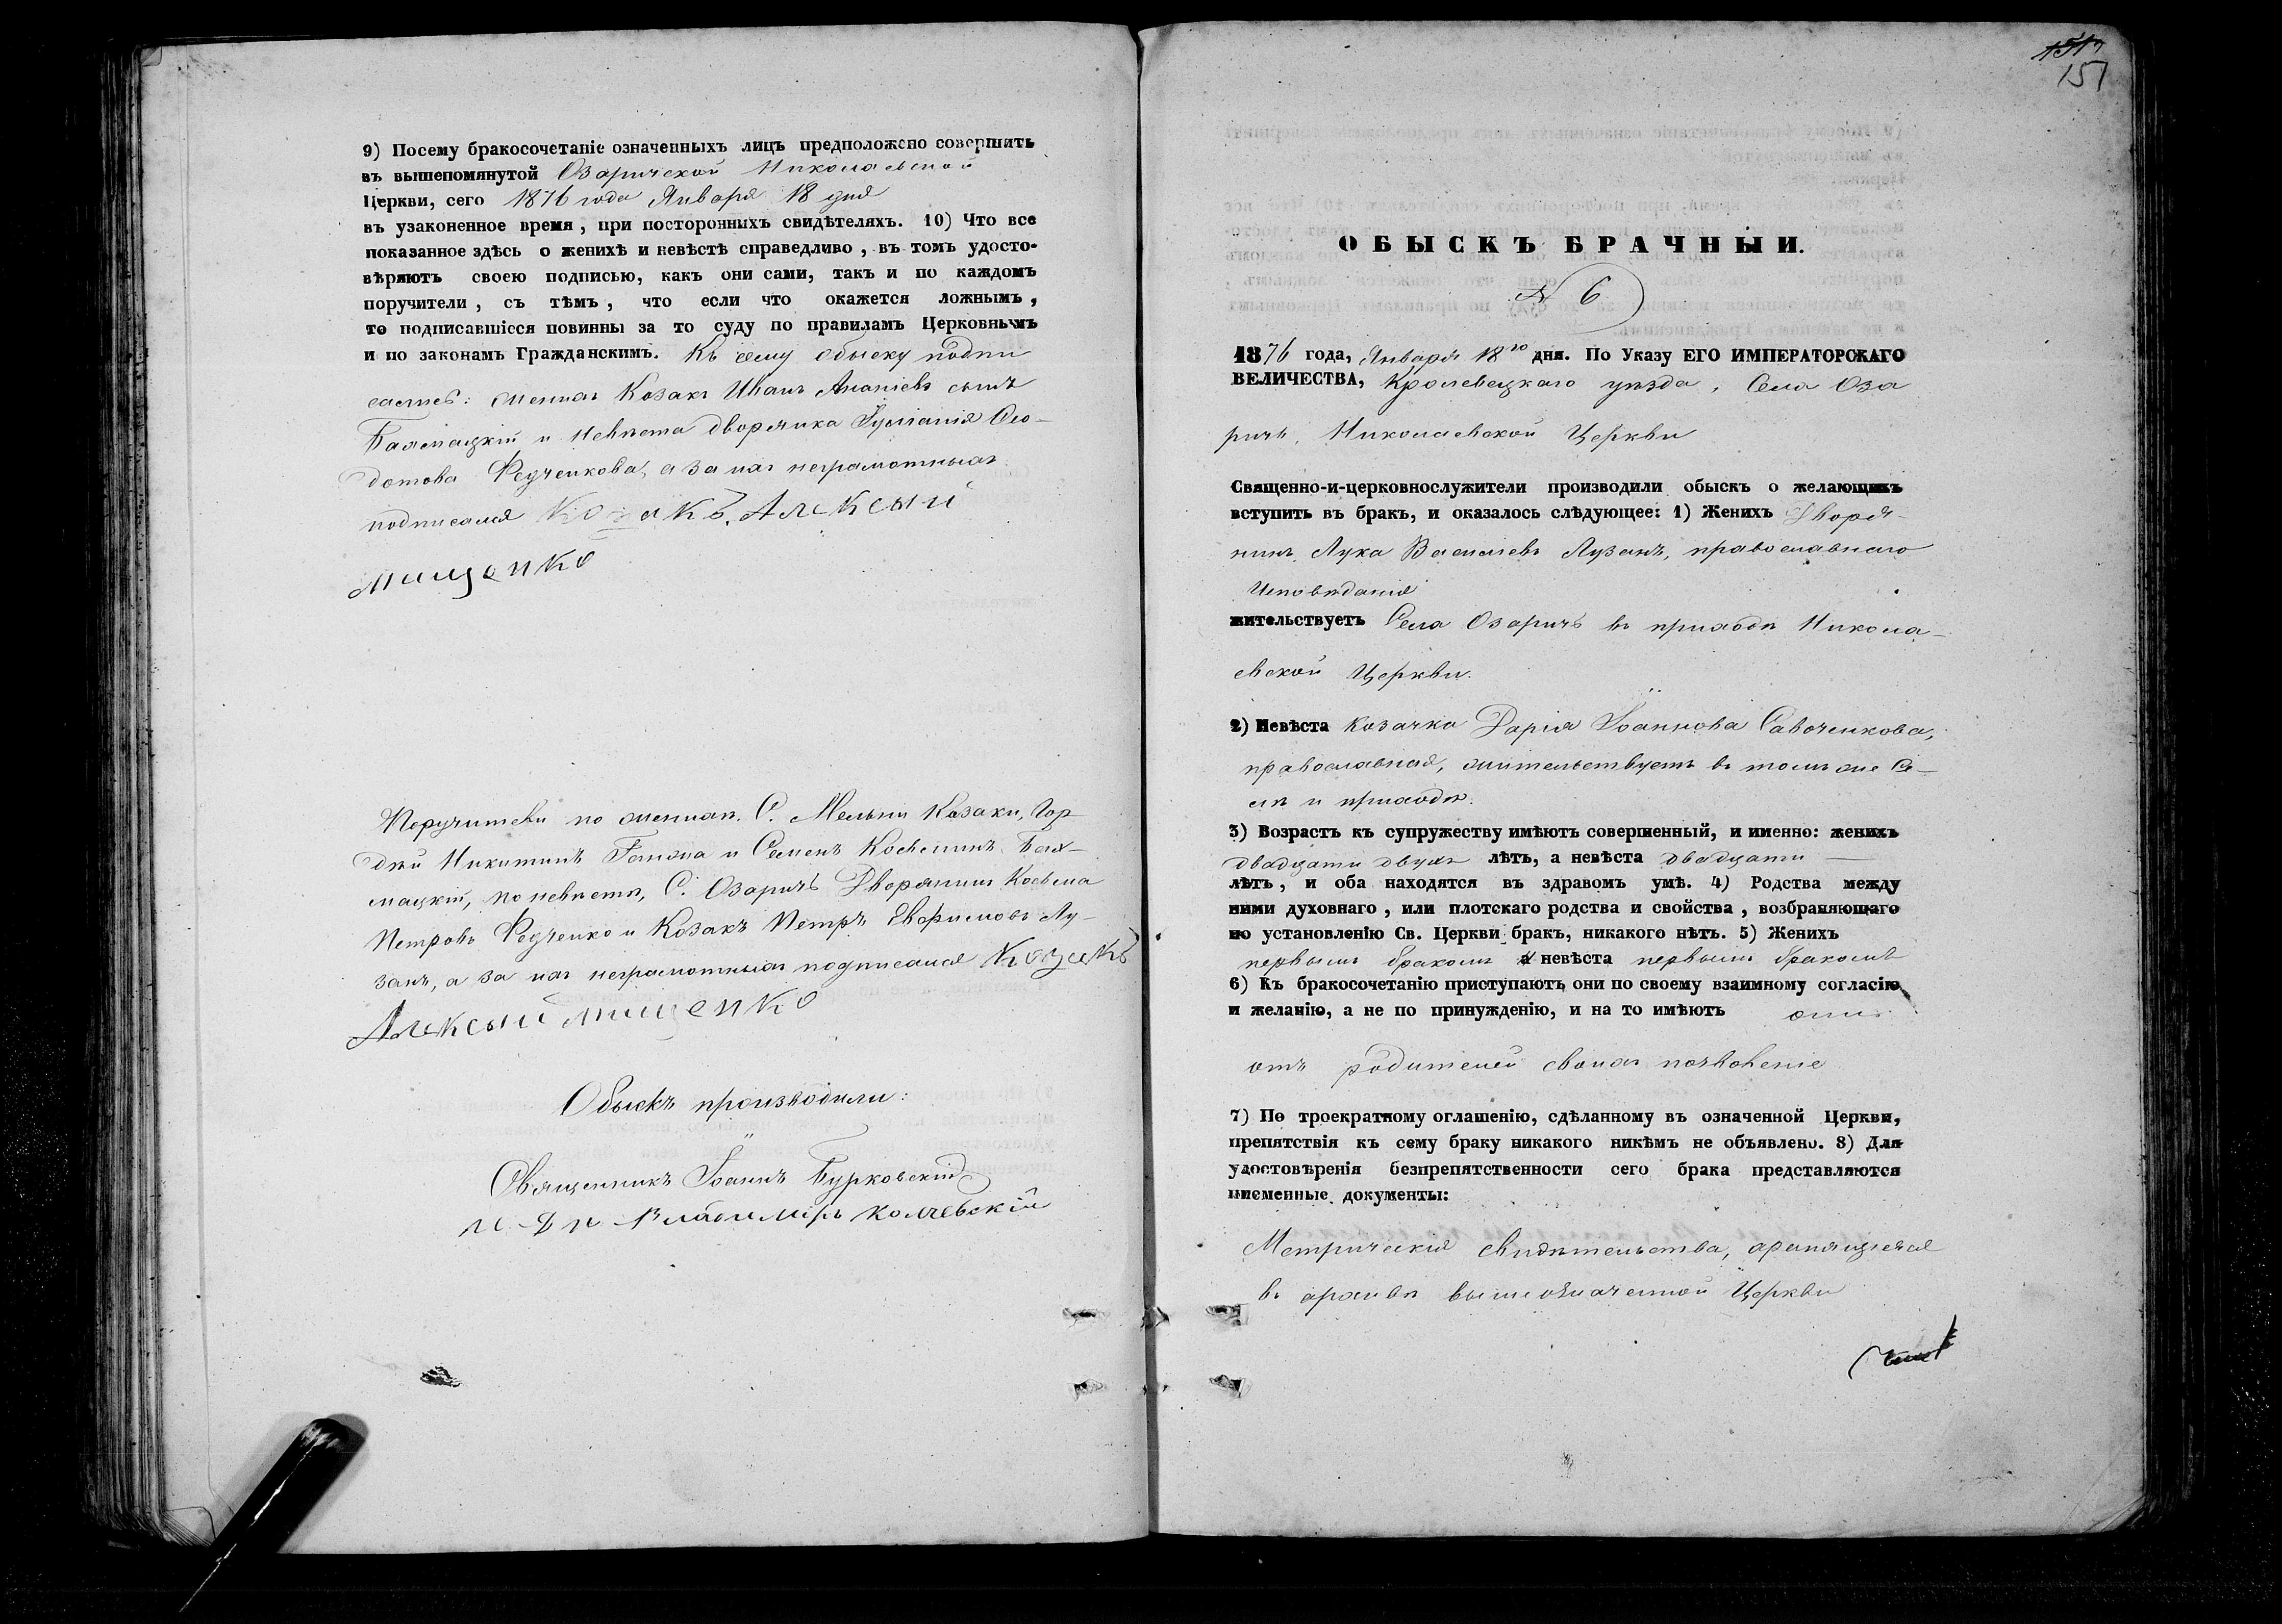 9) Посему бракосочетаніе означенныхъ лицъ предположено совершить
въ вышепомянутой Озаричской Николаевской
Церкви, сего 1876 года Января 18 дня
въ узаконенное время, при постороннихъ свидѣтеляхъ. 10) Что все
показанное здѣсь о женихѣ и невѣстѣ справедливо, въ томъ удосто-
вѣряютъ своею подписью, какъ они сами, такъ и по каждомъ
поручители, съ тѣмъ, что если что окажется ложнымъ,
то подписавшіеся повинны за то суду по правиламъ Церковнымъ
и по законамъ Гражданскимъ. Къ сему обыску подпи
сались: женихъ Козакъ Иванъ Ананіевъ сынъ
Бахмацкій и невѣста дворянка Ѳео-
дотова Федченкова, а за нихъ неграмотныхъ
подписался Козакъ, Алексый
Мищенко
Поручители по женихѣ, С. Мельни Козаки, Гор
дѣй Никитинъ и Семенъ Космишъ Бах-
мацкій, по невѣстѣ, С. Озаричъ Дворянинъ Косьма
Петровъ Федченко и Козакъ Петръ Евфимовъ Лу-
занъ, а за нихъ неграмотныхъ подписался Козакъ
Алексый Мищенко
Обыскъ производили:
Священникъ Іоаннъ Бурковскій
И. Д. П. Владимиръ
151
ОБЫСКЪ БРАЧНЫЙ.
№ 6
1876 года, Января 18го дня. По Указу ЕГО ИМПЕРАТОРСКАГО
ВЕЛИЧЕСТВА, Кролевецкаго уѣзда, Села Оза
ричъ, Николаевской Церкви
Священно-и-церковнослужители производили обыскъ о желающихъ
вступить въ бракъ, и оказалось слѣдующее: 1) Женихъ Дворя-
нинъ, Лука Васильевъ Лузанъ, православнаго
Исповѣданія
жительствуетъ Села Озаричъ въ приходѣ Никола-
евской Церкви.
2) Невѣста Козачка Дарія Іоаннова Савоченкова,
православная, жительствуетъ въ томъ же Се-
лѣ и приходѣ.
3) Возрастъ къ супружеству имѣютъ совершенный, и именно: женихъ
двадцати двухъ лѣтъ, а невѣста двадцати
лѣтъ, и оба находятся въ здравомъ умѣ. 4) Родства между
ними духовнаго, или плотскаго родства и свойства, возбраняющаго
по установленію Св. Церкви бракъ, никакого нѣтъ. 5) Женихъ
первымъ бракомъ а невѣста первымъ бракомъ
6) Къ бракосочетанію приступаютъ они по своему взаимному согласію
и желанію, а не по принужденію, и на то имѣютъ они
отъ родителей своихъ позволеніе
7) По троекратному оглашенію, сдѣланному въ означенной Церкви,
препятствія къ сему браку никакого никѣмъ не объявлено. 8) Для
удостовѣренія безпрепятственности сего брака представляются
писменные документы:
Метрическія свидѣтельства, хранящіеся
въ архивѣ вышеозначенной Церкви